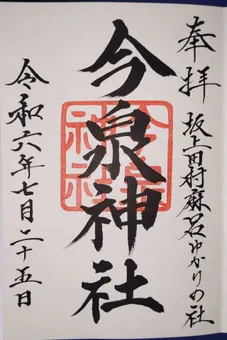 奉拝
坂上田村麻呂ゆかりの社
今泉神社
令和六年七月二十五日